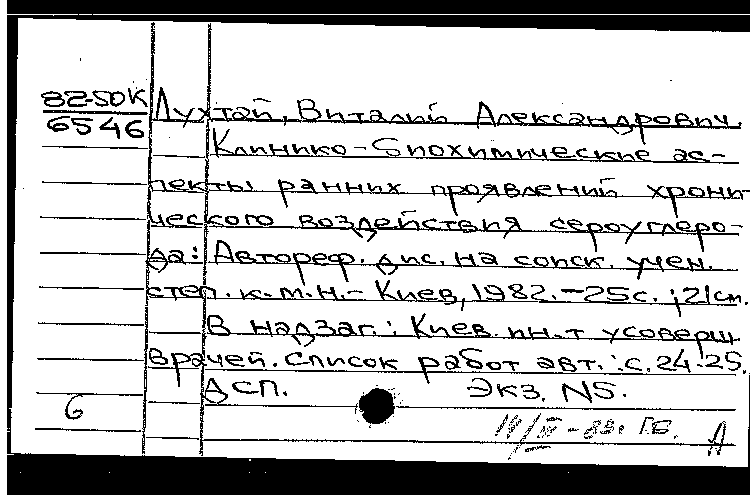 82-50К
6546
Лухтай, Виталий Александрович.
Клинико-биохимические ас-
пекты ранних проявлений хрони-
ческого воздействия сероуглеро-
да: Автореф. дис. на соиск. учен.
степ. к.м.н. - Киев, 1982. - 25с. ; 21см.
В надзаг.: Киев. ин-т усоверш.
врачей. Список работ авт.: с.24-25.
ДСП. Экз. N5.
6
А